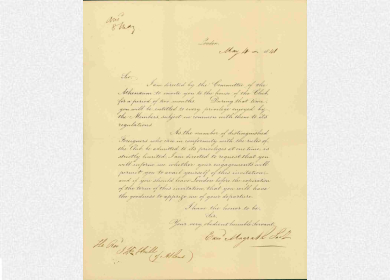 London
May
Sir
I am directed by the Committee of the
Athenæum to invite you to the house of the Club
for a period of six months. During that time
you will be entitled to every privilege enjoyed by
the Members subject in common with them to its
regulations.
As the number of distinguished
Foreigners who are in conformity with the rules of
the Club be admitted to its privileges at one time is
strictly limited, I am directed to request that you will
inform me whether your engagements will
permit you to avail yourself of this invitation
and if you should leave London before the expiration
of the term of this invitation that you will have
the goodness to apprize me of your departure.
I have the honor to be
Sir
Your very obedient humble Servant
Magrath